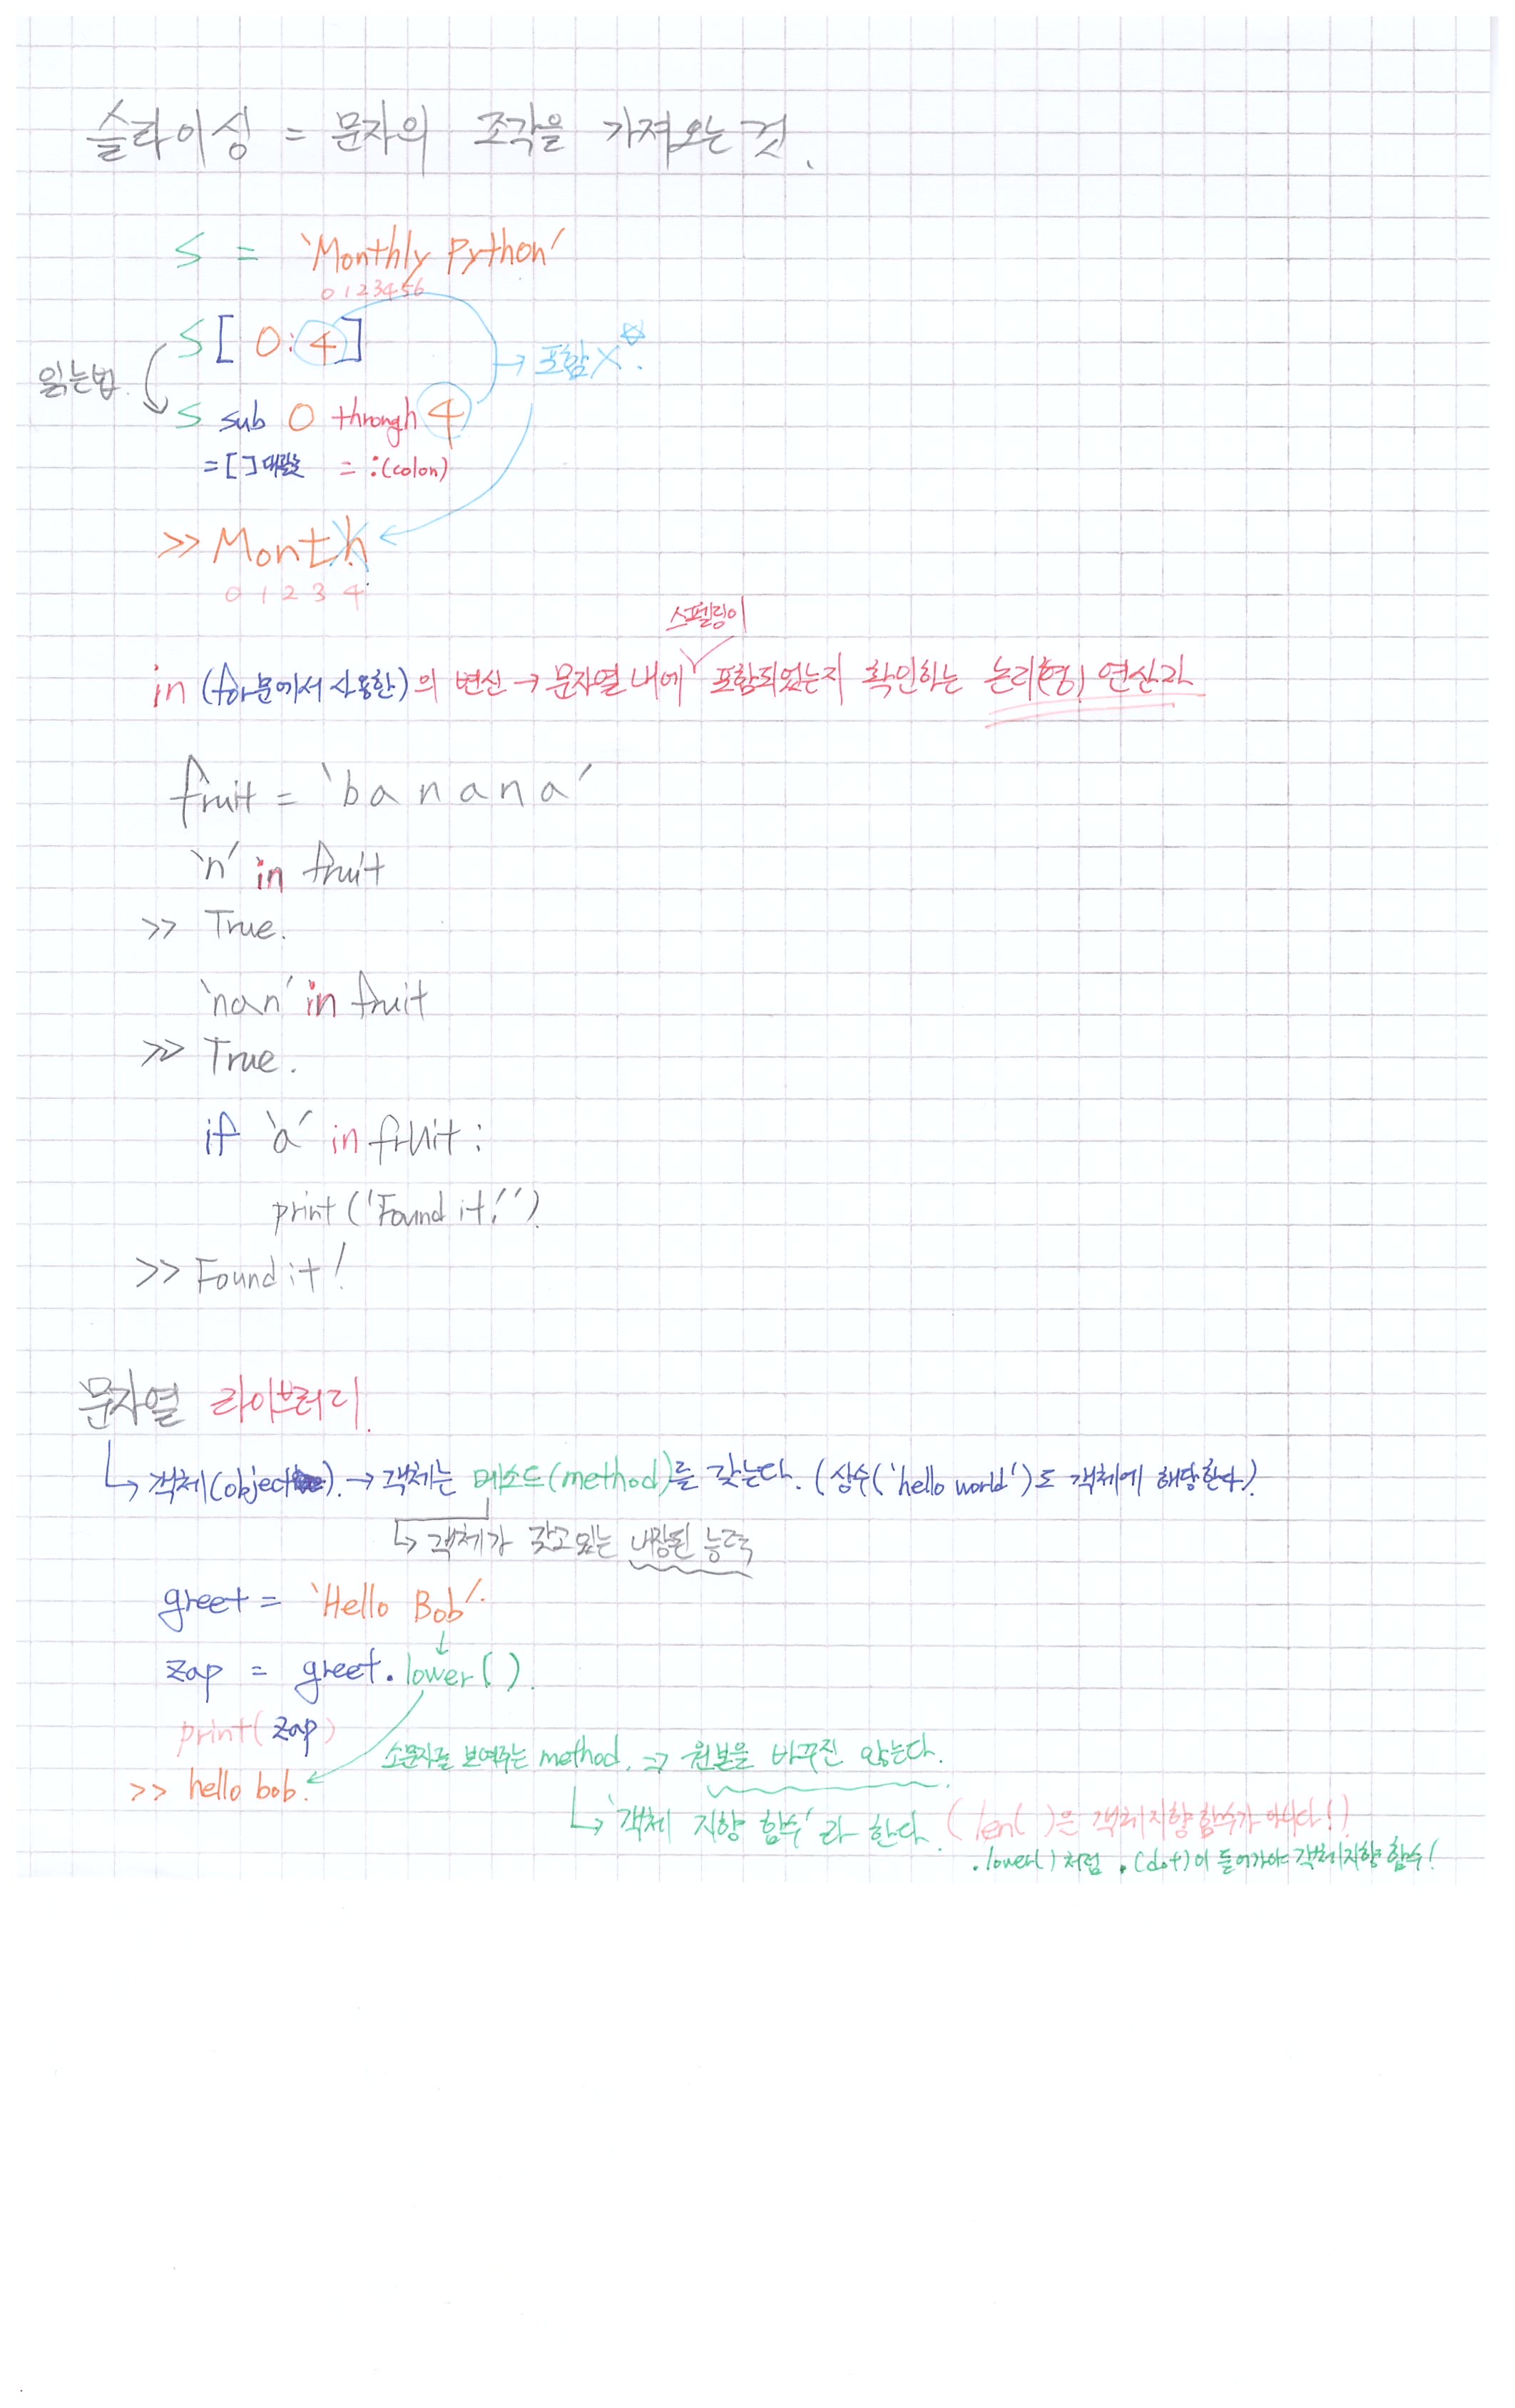 슬라이싱 = 문자의 조각을 가져오는 것.
s = 'Monthly Python'
0 1 2 3 4 5 6
s [ 0 : 4 ]
→ 포함X☆.
읽는법.
s sub 0 through 4
=[ ]대괄호 = :(colon)
>> Month
0 1 2 3 4
스펠링이
in (for문에서 사용한)의 변신 → 문자열 내에 포함되었는지 확인하는 논리(형) 연산자
fruit = 'banana'
'n' in fruit
>> True.
'nan' in fruit
>> True.
if 'a' in fruit :
print ('Found it!')
>> Found it!
문자열 라이브러리.
↳ 객체(object). → 객체는 메소드(method)를 갖는다. (상수('hello world')도 객체에 해당한다)
↳ 객체가 갖고있는 내장된 능력
greet = 'Hello Bob'
zap = greet.lower( ).
print( zap )
소문자를 보여주는 method. ⇒ 원본을 바꾸진 않는다.
>> hello bob.
↳ '객체 지향 함수'라 한다. (len( )은 객체지향함수가 아니다!)
.lower()처럼 .(dot)이 들어가야 객체지향 함수!